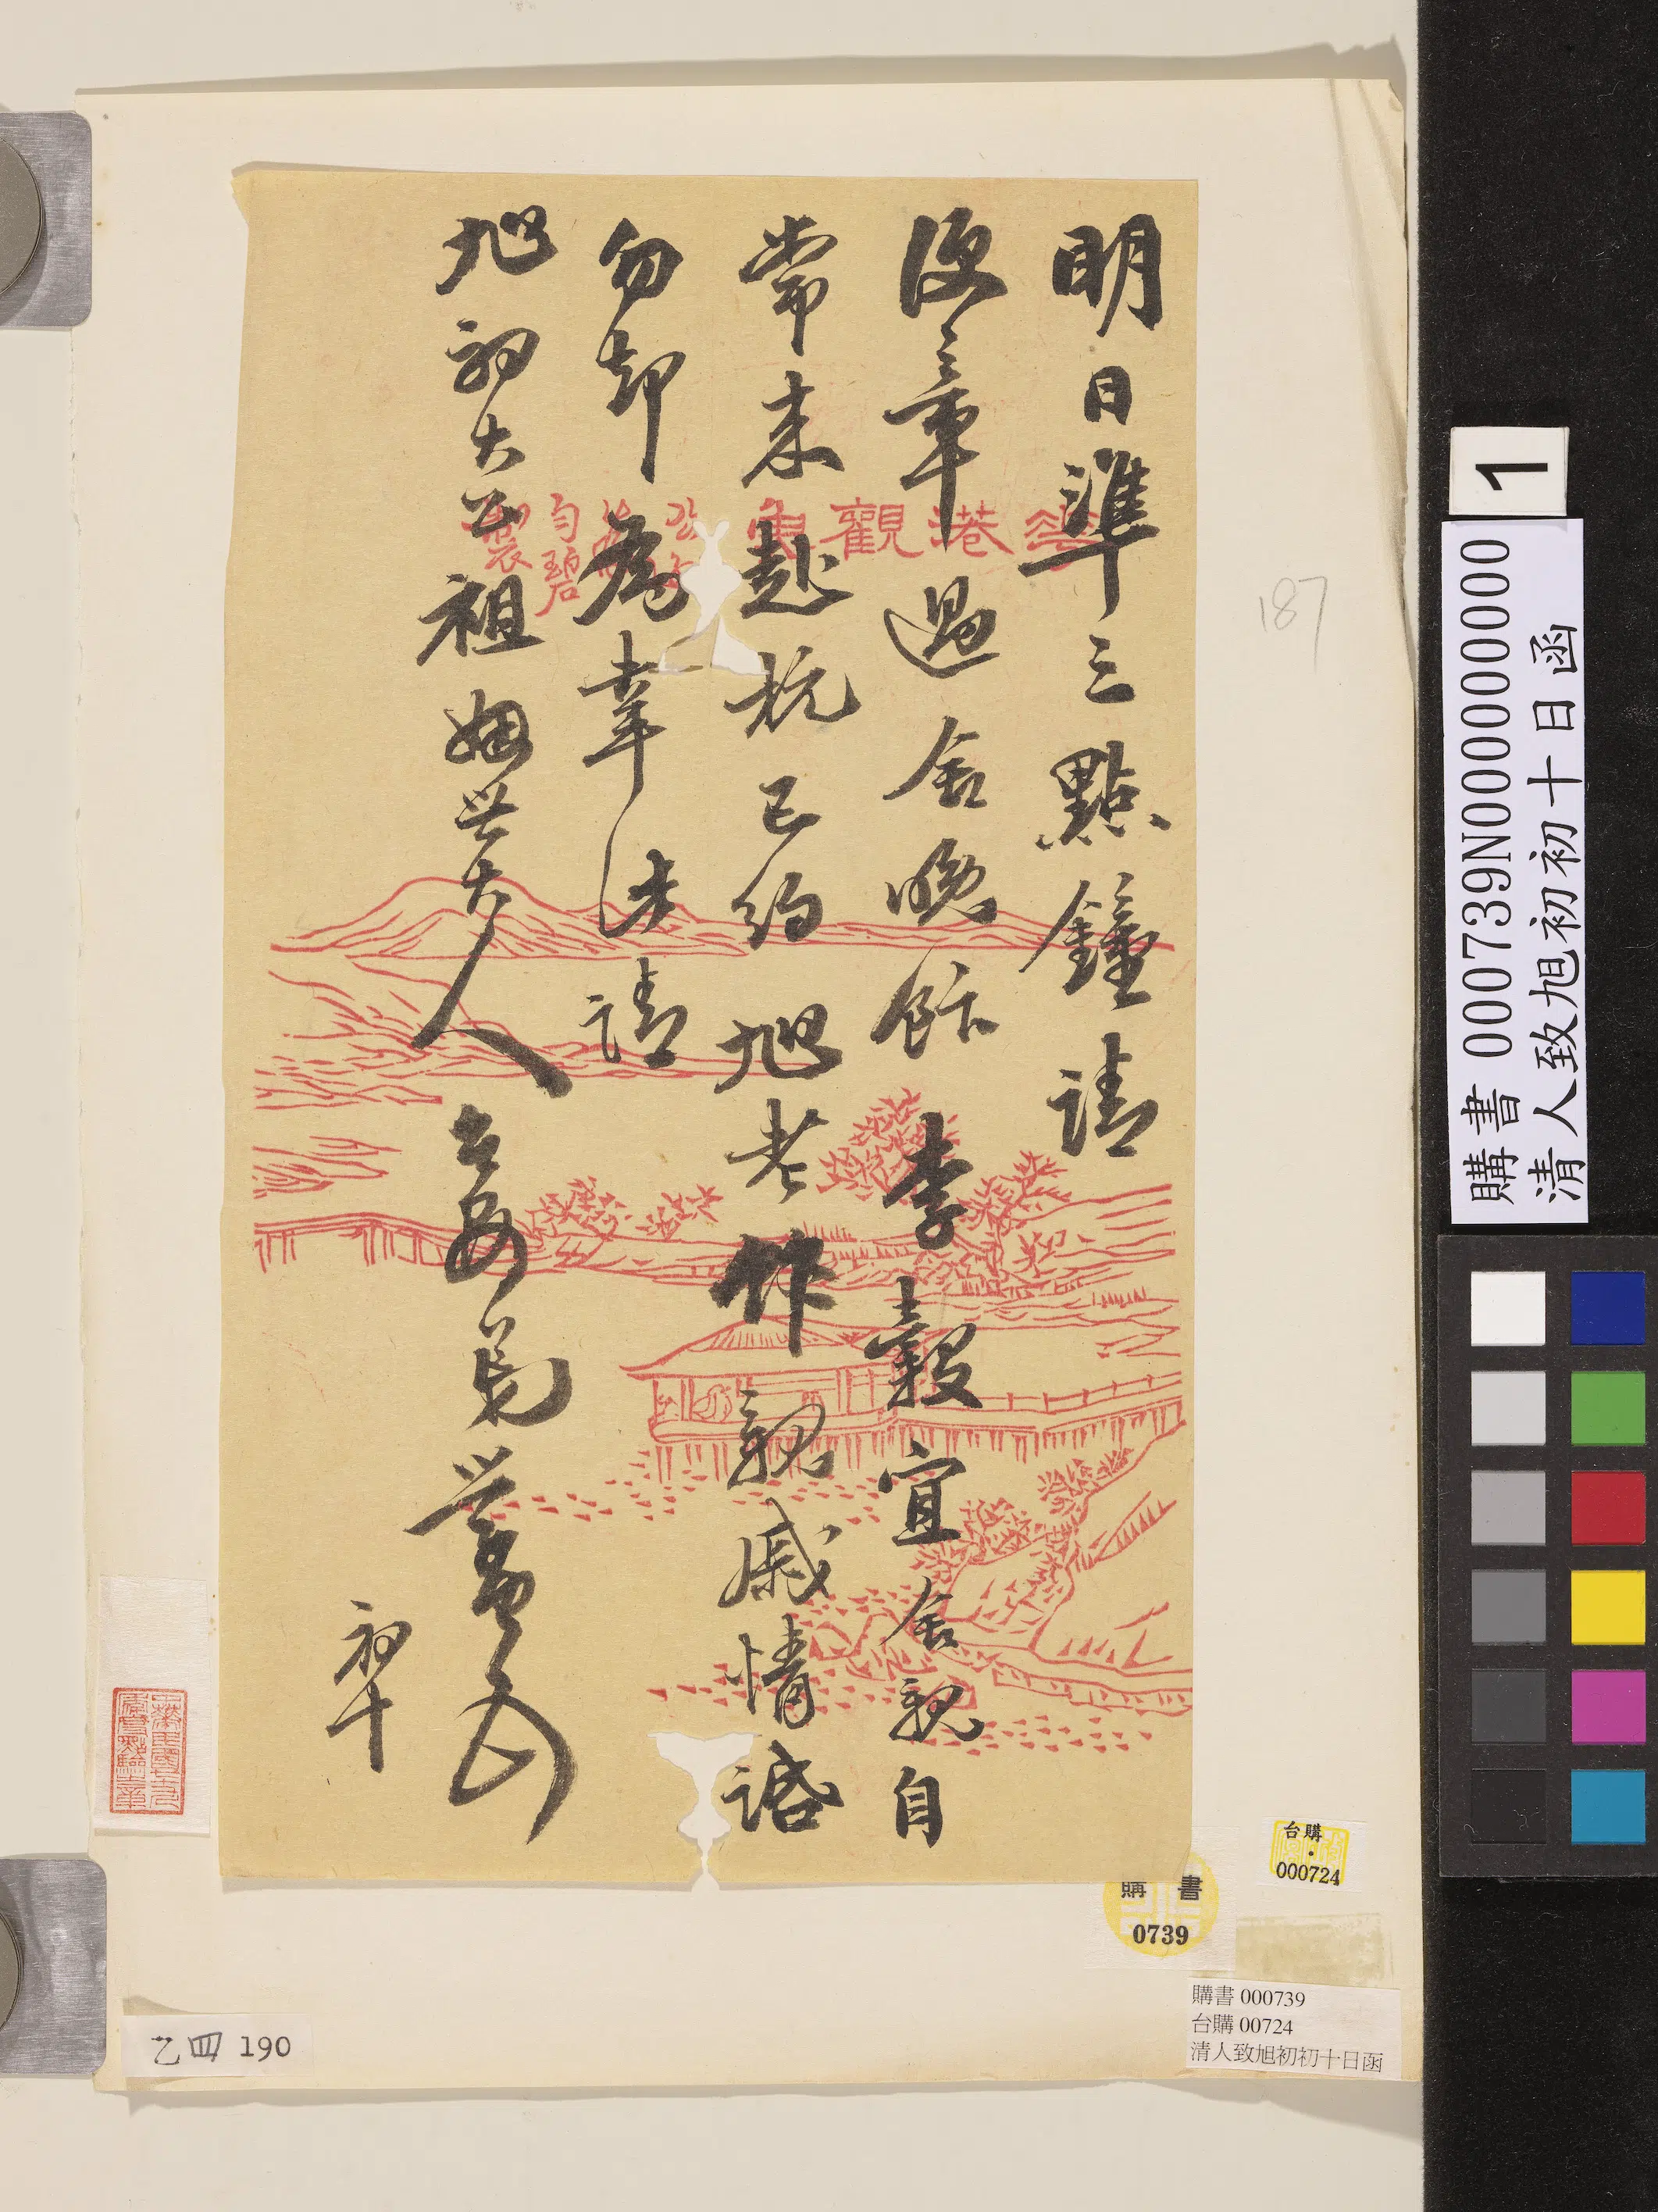 明日準三點鐘請
便章過舍晚飰李穀宜舍親自
常來赴杭已約旭老作親戚情話
勿却為幸此請
旭初大公祖姻世大人台安 世
初十
港觀魚
勻碧
製
187
1
購書 000739N000000000
清人致旭初初十日函
台購
000724
購書
0739
購書 000739
台購 00724
清人致旭初初十日函
乙四 190